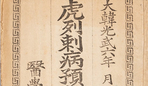 大韓光武六年 月
虎列剌病預
醫